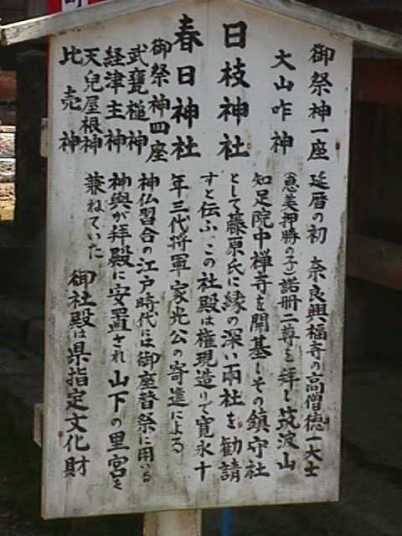 日枝神社
御祭神一座
大山咋神
春日神社
御祭神四座
武甕槌神
経津主神
天児屋根神
比売神
延暦の初 奈良興福寺の高僧徳一大士
(恵美押勝の子)諾冊二尊を拝し筑波山
知足院中禅寺を開基しその鎮守社
として藤原氏に縁の深い両社を勧請
すと伝ふ、この社殿は権現造りで寛永十
年三代将軍家光公の寄進による
神仏習合の江戸時代には御座替祭に用いる
神輿が拝殿に安置され山下の里宮を
兼ねていた
御社殿は県指定文化財